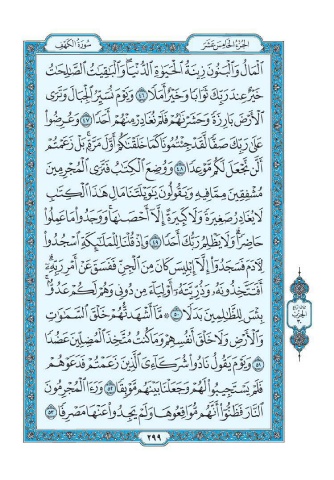 سُورَةُ الكَهْفِ
الجُزْءُ الخَامِسَ عَشَرَ
ٱلْمَالُ وَٱلْبَنُونَ زِينَةُ ٱلْحَيَوٰةِ ٱلدُّنْيَا ۖ وَٱلْبَـٰقِيَـٰتُ ٱلصَّـٰلِحَـٰتُ
خَيْرٌ عِندَ رَبِّكَ ثَوَابًا وَخَيْرٌ أَمَلًا ٤٦ وَيَوْمَ نُسَيِّرُ ٱلْجِبَالَ وَتَرَى
ٱلْأَرْضَ بَارِزَةً وَحَشَرْنَـٰهُمْ فَلَمْ نُغَادِرْ مِنْهُمْ أَحَدًا ٤٧ وَعُرِضُوا۟
عَلَىٰ رَبِّكَ صَفًّا لَّقَدْ جِئْتُمُونَا كَمَا خَلَقْنَـٰكُمْ أَوَّلَ مَرَّةٍۭ ۚ بَلْ زَعَمْتُمْ
أَلَّن نَّجْعَلَ لَكُم مَّوْعِدًا ٤٨ وَوُضِعَ ٱلْكِتَـٰبُ فَتَرَى ٱلْمُجْرِمِينَ
مُشْفِقِينَ مِمَّا فِيهِ وَيَقُولُونَ يَـٰوَيْلَتَنَا مَالِ هَـٰذَا ٱلْكِتَـٰبِ
لَا يُغَادِرُ صَغِيرَةً وَلَا كَبِيرَةً إِلَّآ أَحْصَىٰهَا ۚ وَوَجَدُوا۟ مَا عَمِلُوا۟
حَاضِرًا ۗ وَلَا يَظْلِمُ رَبُّكَ أَحَدًا ٤٩ وَإِذْ قُلْنَا لِلْمَلَـٰٓئِكَةِ ٱسْجُدُوا۟
لِـَٔادَمَ فَسَجَدُوٓا۟ إِلَّآ إِبْلِيسَ كَانَ مِنَ ٱلْجِنِّ فَفَسَقَ عَنْ أَمْرِ رَبِّهِۦٓ ۗ
أَفَتَتَّخِذُونَهُۥ وَذُرِّيَّتَهُۥٓ أَوْلِيَآءَ مِن دُونِى وَهُمْ لَكُمْ عَدُوٌّۢ ۚ
بِئْسَ لِلظَّـٰلِمِينَ بَدَلًا ٥٠ مَّآ أَشْهَدتُّهُمْ خَلْقَ ٱلسَّمَـٰوَٰتِ
وَٱلْأَرْضِ وَلَا خَلْقَ أَنفُسِهِمْ وَمَا كُنتُ مُتَّخِذَ ٱلْمُضِلِّينَ عَضُدًا
٥١ وَيَوْمَ يَقُولُ نَادُوا۟ شُرَكَآءِىَ ٱلَّذِينَ زَعَمْتُمْ فَدَعَوْهُمْ
فَلَمْ يَسْتَجِيبُوا۟ لَهُمْ وَجَعَلْنَا بَيْنَهُم مَّوْبِقًا ٥٢ وَرَءَا ٱلْمُجْرِمُونَ
ٱلنَّارَ فَظَنُّوٓا۟ أَنَّهُم مُّوَاقِعُوهَا وَلَمْ يَجِدُوا۟ عَنْهَا مَصْرِفًا ٥٣
٢٩٩